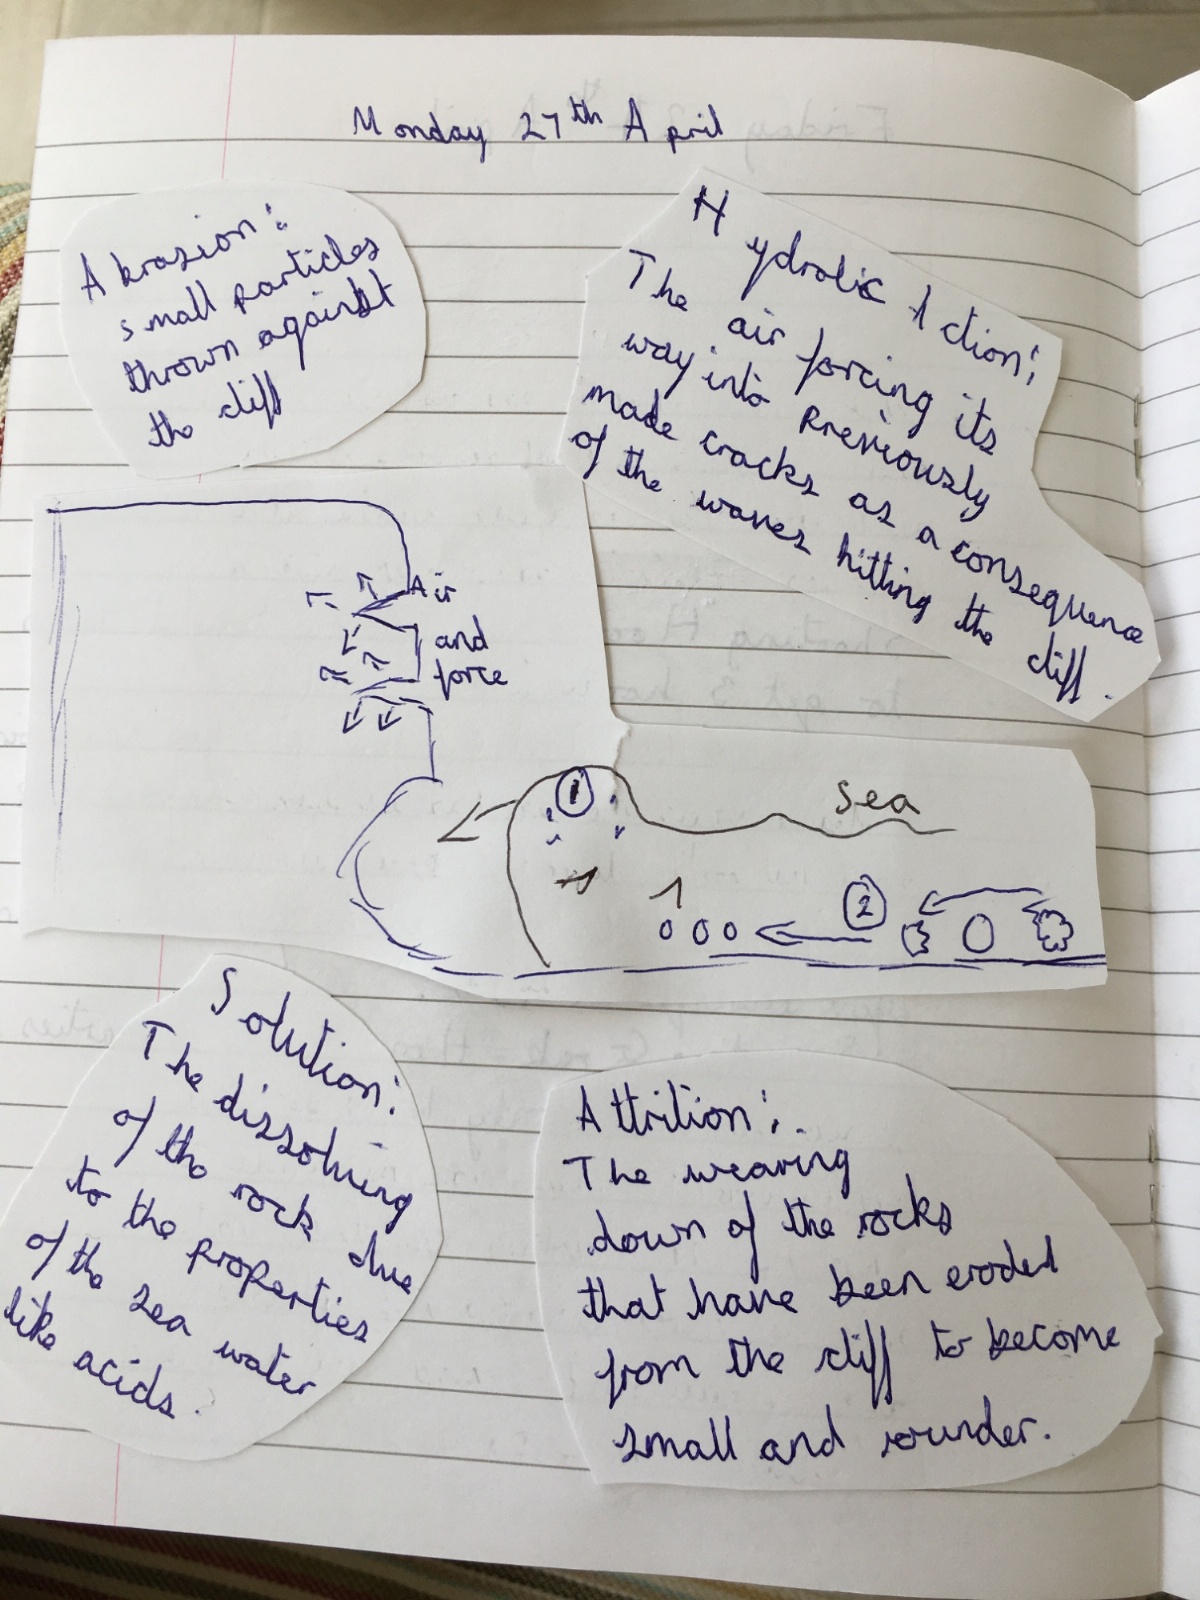 Monday 27th April
Abrasion:
small particles
thrown against
the cliff
Hydrolic Action:
The air forcing its
way into previously
made cracks as a consequence
of the waves hitting the cliff.
Air
and
force
1
sea
2
Solution:
The dissolving
of the rock due
to the properties
of the sea water
like acids.
Attrition:
The wearing
down of the rocks
that have been eroded
from the cliff to become
small and rounder.